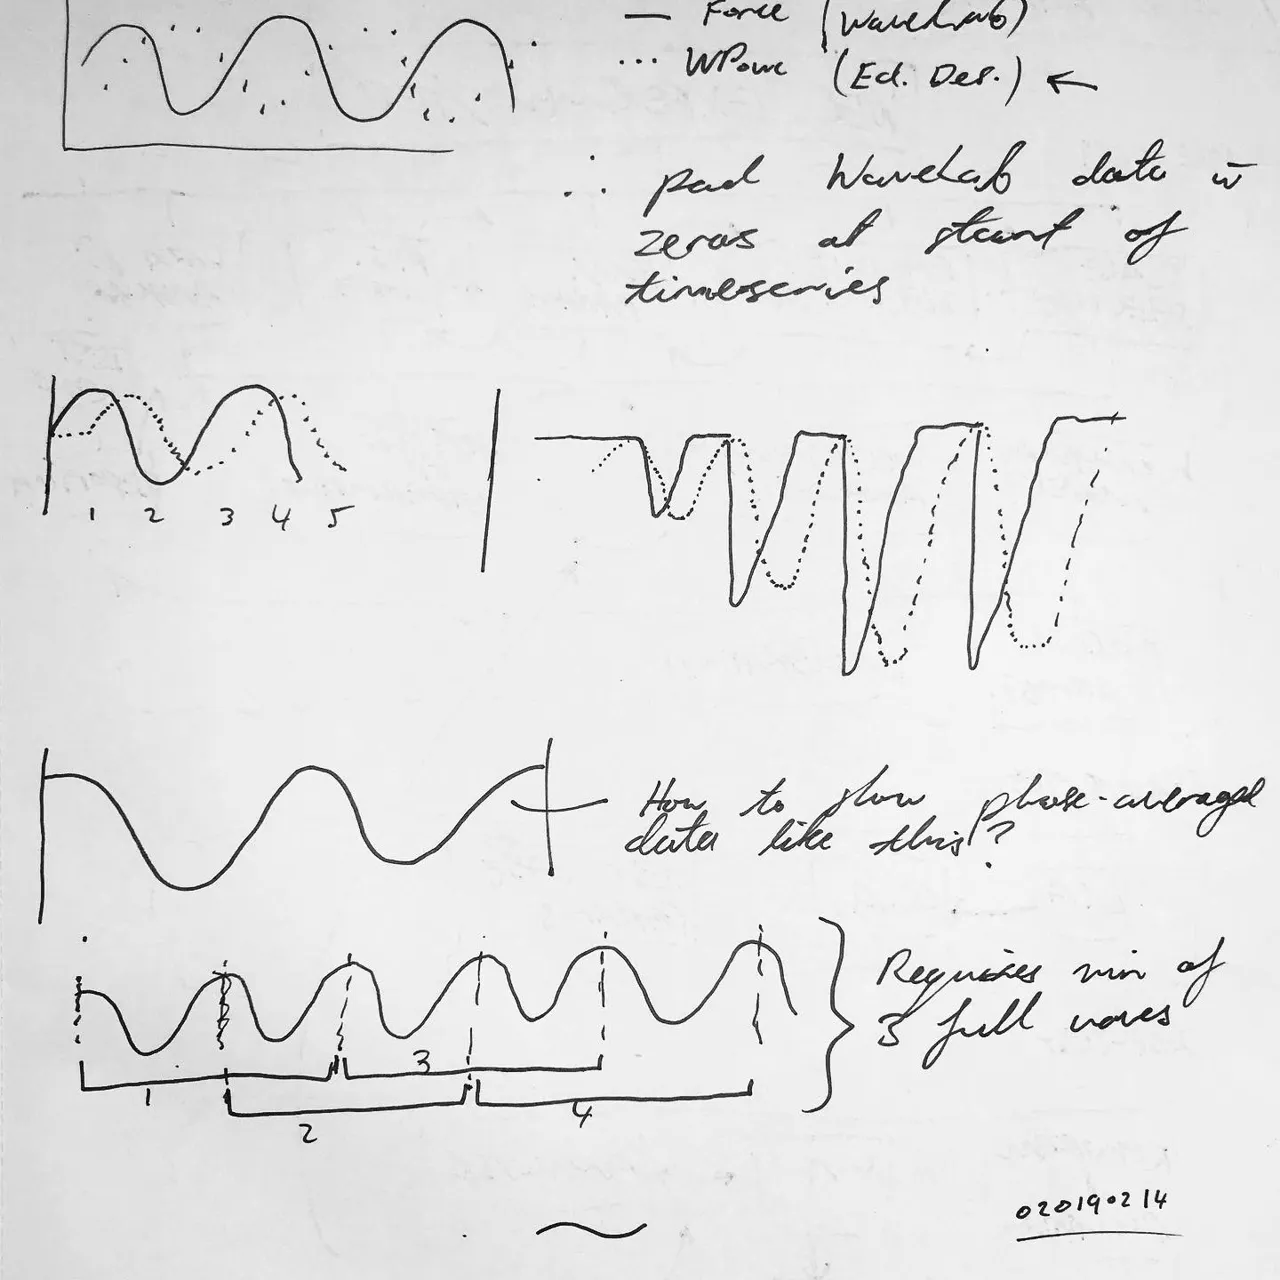 — Force (WaveLab)
... WPowe (Ed. Des.) ←
∴ pad WaveLab data w̄
zeros at start of
timeseries
1 2 3 4 5
How to show phase-averaged
data like this?
Requires min of
3 full waves
3
1
4
2
020190214